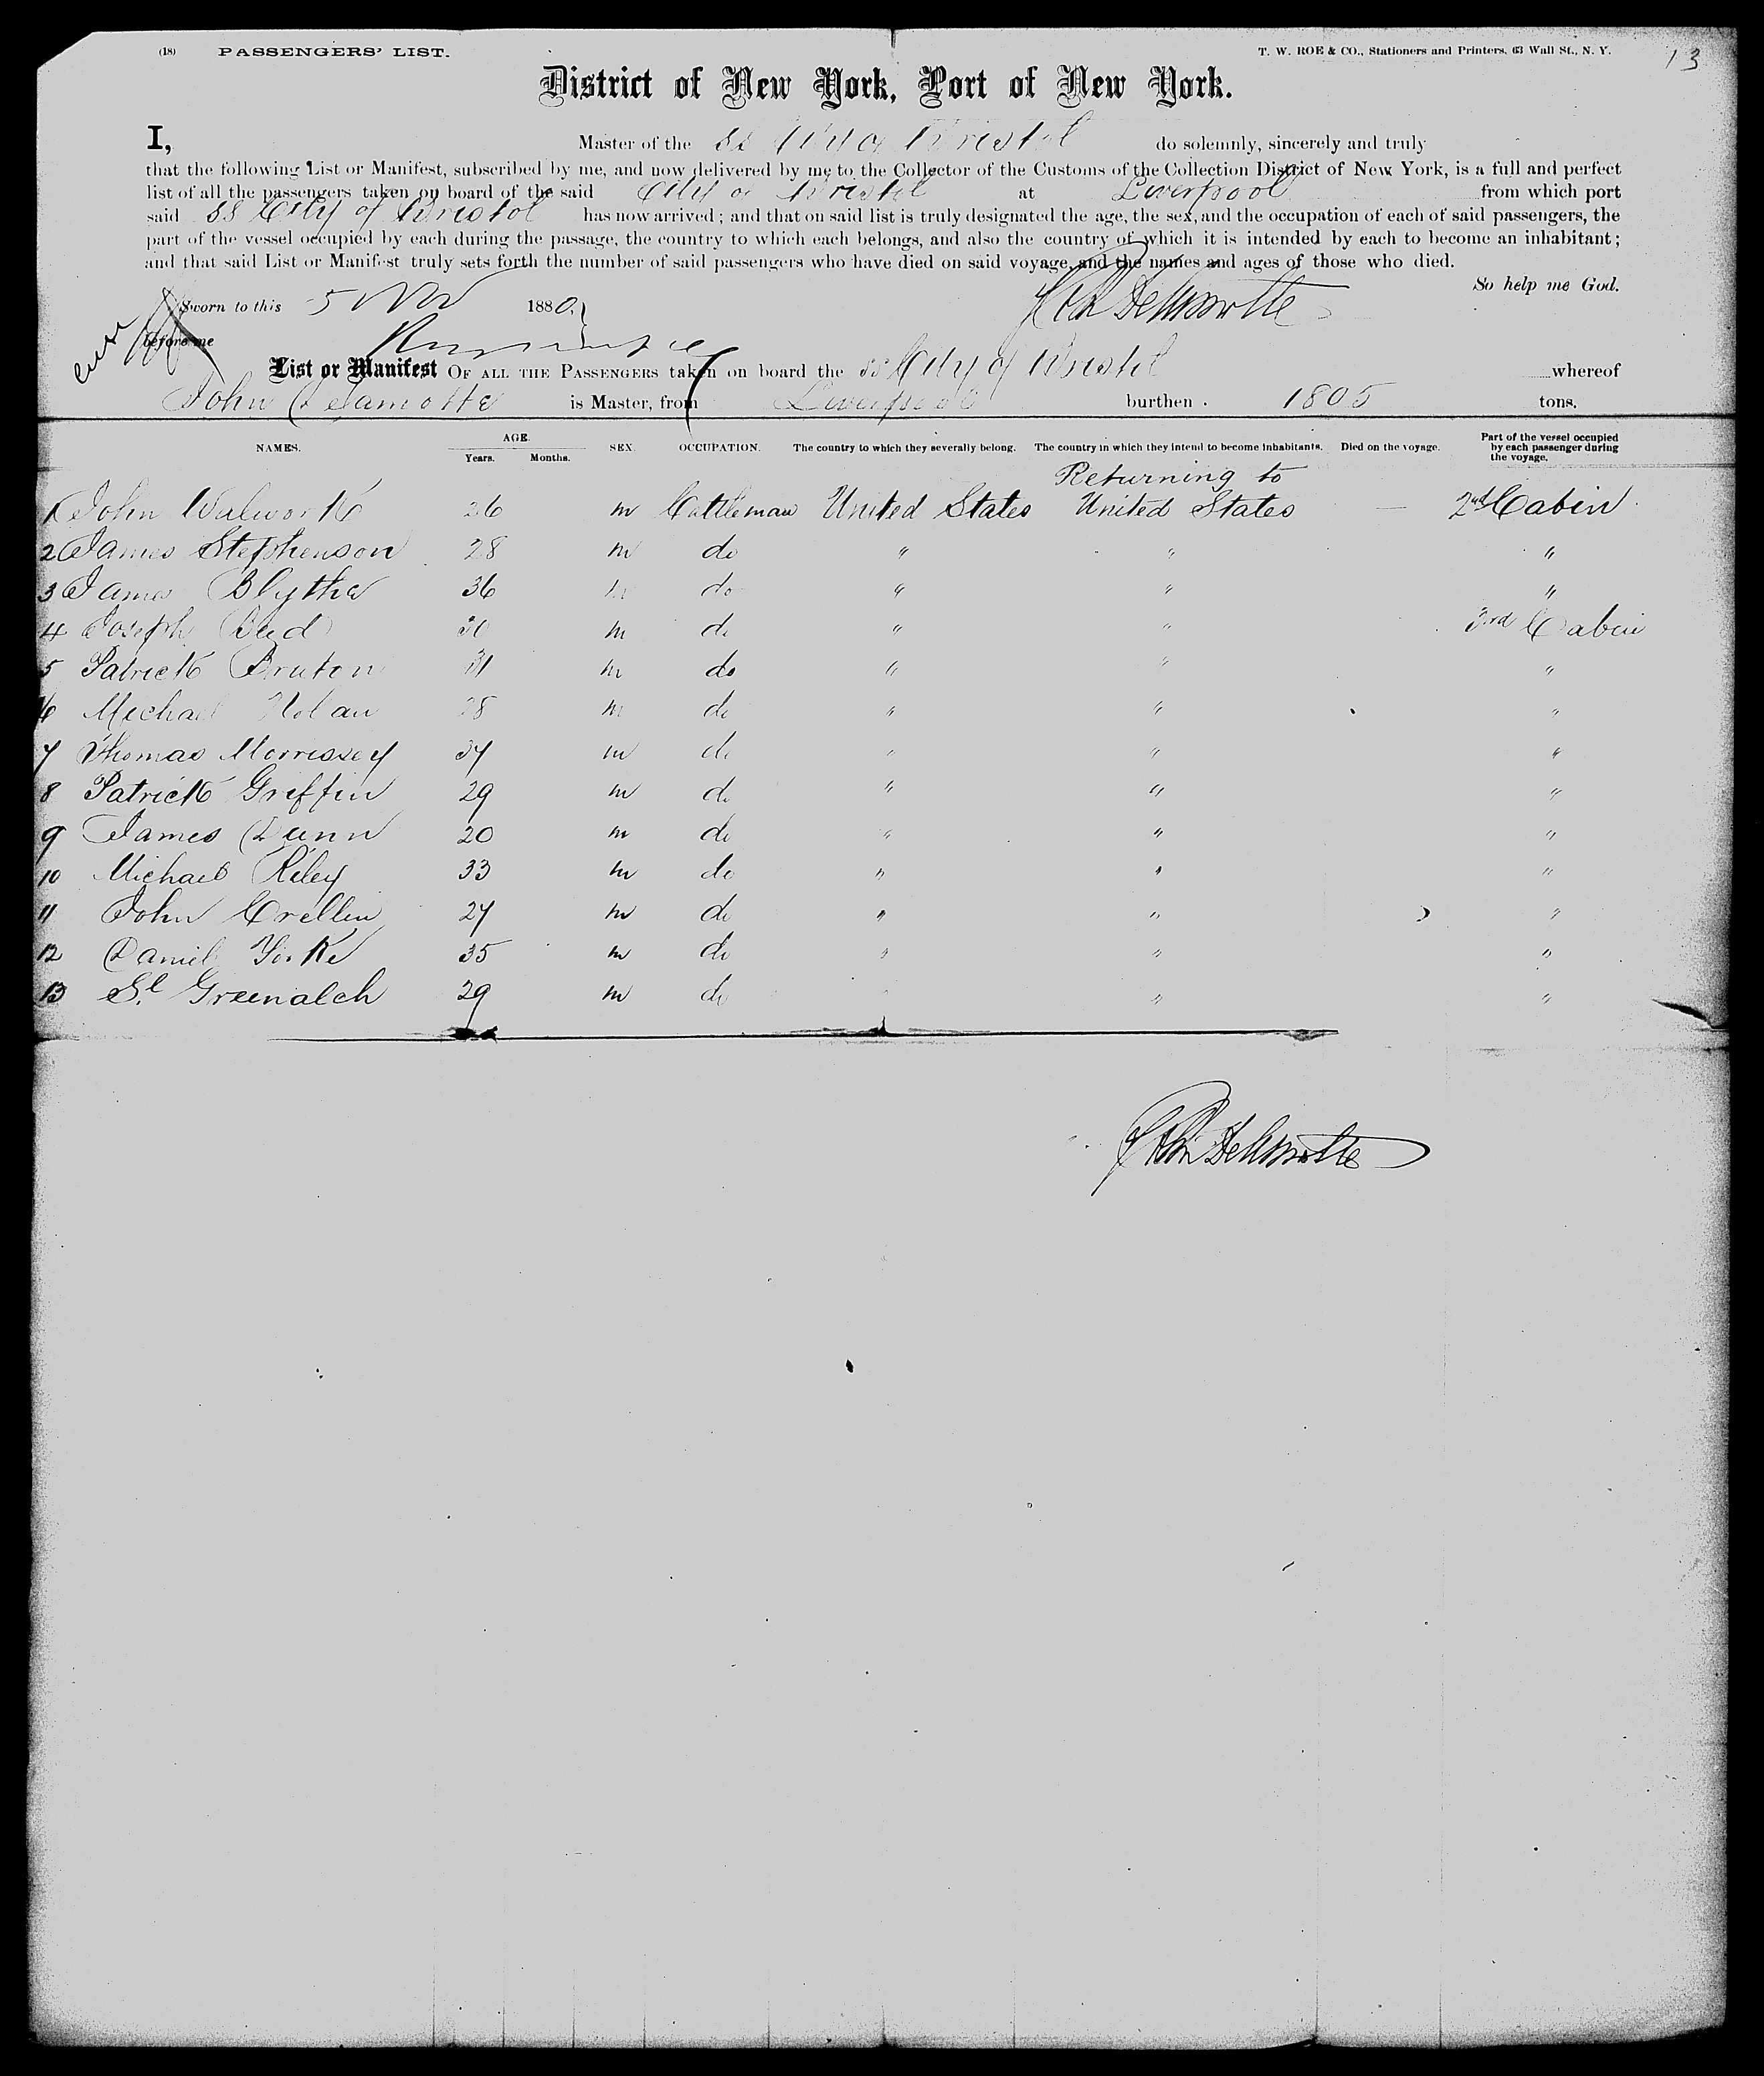 (18) PASSENGERS' LIST. T. W. ROE & CO., Stationers and Printers, 63 Wall St., N. Y. 13
District of New York, Port of New York.
I, Master of the SS City of Bristol do solemnly, sincerely and truly
that the following List or Manifest, subscribed by me, and now delivered by me to the Collector of the Customs of the Collection District of New York, is a full and perfect
list of all the passengers taken on board of the said City of Bristol at Liverpool from which port
said SS City of Bristol has now arrived; and that on said list is truly designated the age, the sex, and the occupation of each of said passengers, the
part of the vessel occupied by each during the passage, the country to which each belongs, and also the country of which it is intended by each to become an inhabitant;
and that said List or Manifest truly sets forth the number of said passengers who have died on said voyage, and the names and ages of those who died.
So help me God.
Sworn to this 5 Nov 1880. John Delamotte
before me
List or Manifest OF ALL THE PASSENGERS taken on board the SS City of Bristol whereof
John Delamotte is Master, from Liverpool burthen 1805 tons.
NAMES. AGE. Years. Months. SEX. OCCUPATION. The country to which they severally belong. The country in which they intend to become inhabitants. Died on the voyage. Part of the vessel occupied by each passenger during the voyage.
Returning to
1 John Walwork 26 m Cattleman United States United States — 2nd Cabin
2 James Stephenson 28 m do " " "
3 James Blythe 36 m do " " "
4 Joseph 30 m do " " 3rd Cabin
5 Patrick Bruton 31 m do " " "
6 Michael Nolan 28 m do " " "
7 Thomas Morrissey 37 m do " " "
8 Patrick Griffin 29 m do " " "
9 James Dunn 20 m do " " "
10 Michael Riley 33 m do " " "
11 John Crellin 27 m do " " "
12 Daniel Yorke 35 m do " " "
13 Sl. Greenalch 29 m do " " "
John Delamotte